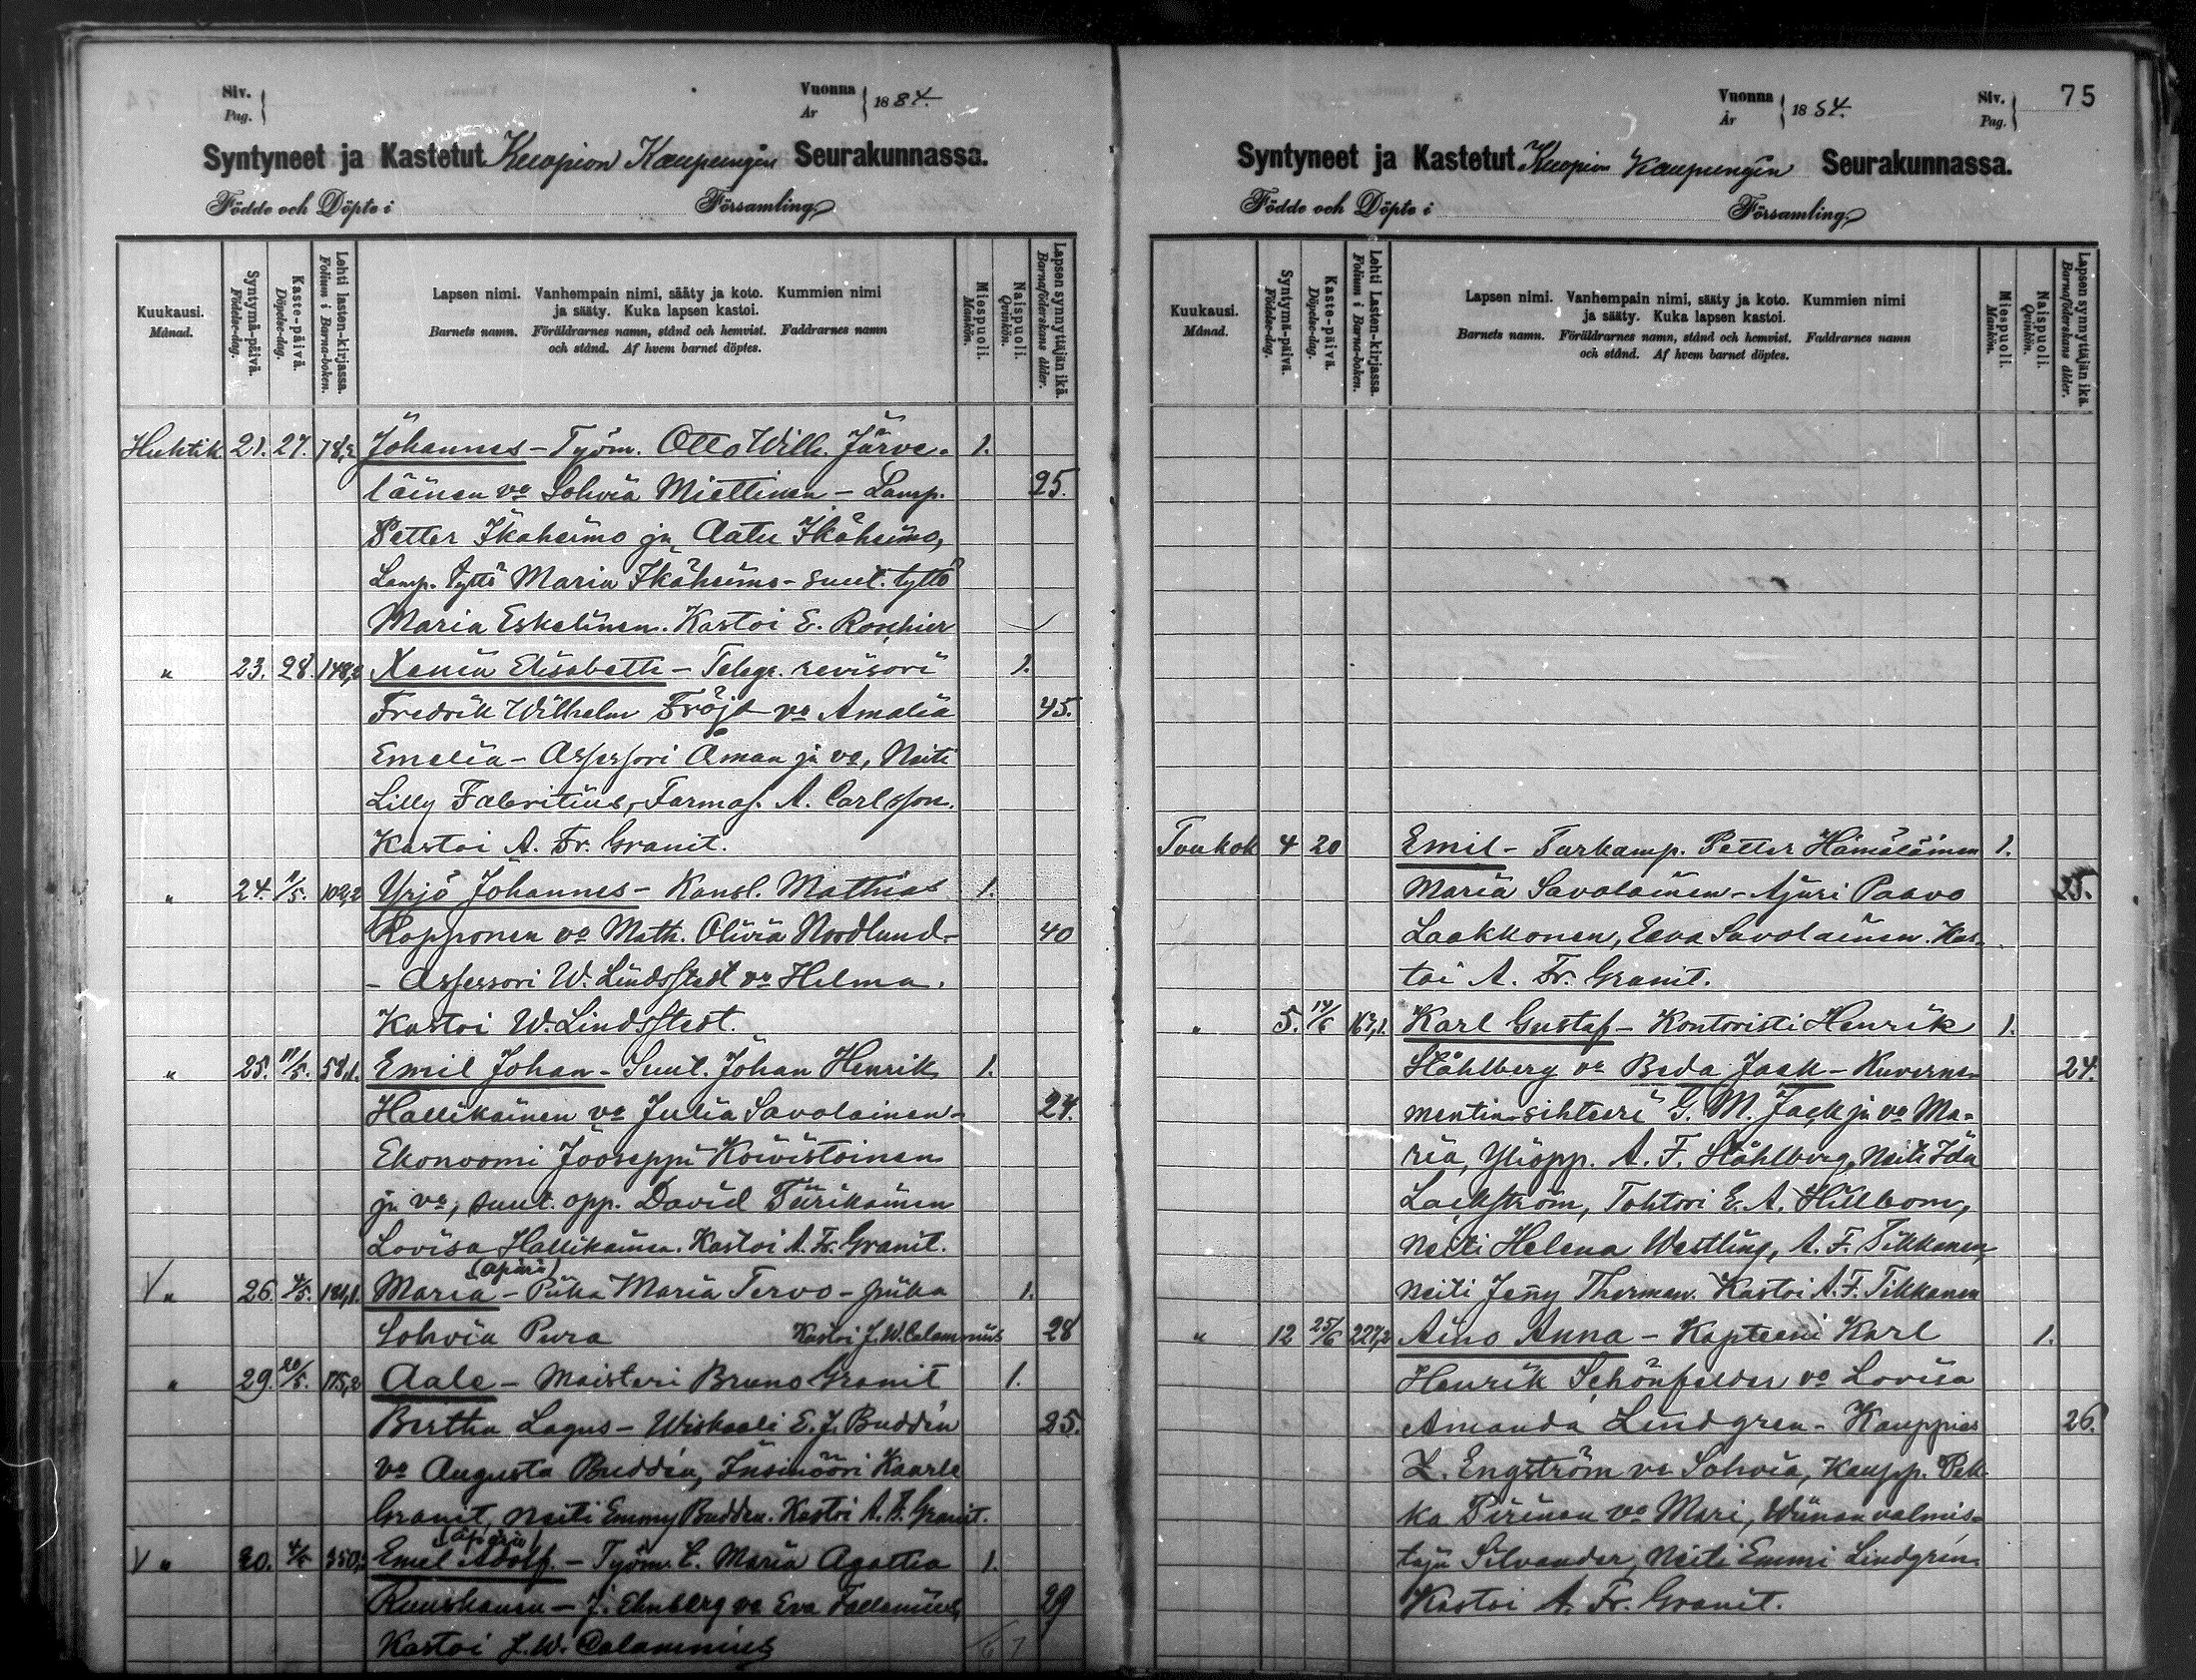 Siv.
Pag.
Vuonna
År
1884.
Syntyneet ja Kastetut Kuopion Kaupungin Seurakunnassa.
Födde och Döpte i Församling.
Kuukausi.
Månad.
Syntymä-päivä.
Födelse-dag.
Kaste-päivä.
Döpelse-dag.
Lehti lasten-kirjassa.
Folium i Barna-boken.
Lapsen nimi. Vanhempain nimi, sääty ja koto. Kummien nimi
ja sääty. Kuka lapsen kastoi.
Barnets namn. Föräldrarnes namn, stånd och hemvist. Faddrarnes namn
och stånd. Af hvem barnet döptes.
Miespuoli.
Mankön.
Naispuoli.
Qvinkön.
Lapsen synnyttäjän ikä.
Barnaföderskans ålder.
Huhtik 21. 27. 78,2 Johannes - Työm. Otto Wilh. Järve- 1.
läinen vo Sohvia Miettinen - Lamp. 25.
Petter Ikäheimo ja Aatu Ikäheimo,
Lamp. tyttö Maria Ikäheimo - suut. tyttö
Maria Eskelinen. Kastoi E. Roschier
" 23. 28. 149,2 Xenia Elisabeth - Telegr. revisori 1.
Fredrik Wilhelm Fröjd vo Amalia 45.
Emelia - Assessori Åman ja vo, Neiti
Lilly Fabritius, Farmas. A. Carlsson.
Kastoi A. Fr. Granit.
" 24. 1/5. 109,2 Yrjö Johannes - Kansl. Mathias 1.
Ropponen vo Math. Olivia Nordlund - 40
- Assessori W. Lindstedt vo Helma.
Kastoi W. Lindstedt.
" 25. 11/5. 58,1. Emil Johan - Suut. Johan Henrik 1.
Hallikainen vo Julia Savolainen - 24.
Ekonoomi Jooseppi Koivistoinen
ja vo, suut. opp. David Tiirikainen
Lovisa Hallikainen. Kastoi A. Fr. Granit.
(äpärä)
" 26. 4/5. 181,1. Maria - Piika Maria Tervo - piika 1.
Sohvia Pura Kastoi J. W. Calamnius 28
" 29. 20/5. 175,2 Aale - Maisteri Bruno Granit 1.
Bertha Lagus - Wiskaali E. J. Buddén 25.
vo Augusta Buddén, Insinööri Kaarle
Granit, Neiti Emmy Buddén. Kastoi A. F. Granit.
(äpärä)
" 30. 4/5 350, Emel Adolf. - Työm. l. Maria Agatha 1.
Ruuskanen - J. Ehnberg vo Eva 29
Kastoi J. W. Calamnius
Vuonna
År
1884.
Siv.
Pag.
75
Syntyneet ja Kastetut Kuopion Kaupungin Seurakunnassa.
Födde och Döpte i Församling.
Kuukausi.
Månad.
Syntymä-päivä.
Födelse-dag.
Kaste-päivä.
Döpelse-dag.
Lehti Lasten-kirjassa.
Folium i Barna-boken.
Lapsen nimi. Vanhempain nimi, sääty ja koto. Kummien nimi
ja sääty. Kuka lapsen kastoi.
Barnets namn. Föräldrarnes namn, stånd och hemvist. Faddrarnes namn
och stånd. Af hvem barnet döptes.
Miespuoli.
Mankön.
Naispuoli.
Qvinkön.
Lapsen synnyttäjän ikä.
Barnaföderskans ålder.
Toukok 4 20 Emil - Turkamp. Petter Hämäläinen 1.
Maria Savolainen - Ajuri Paavo 25.
Laakkonen, Eeva Savolainen. Kas-
toi A. Fr. Granit.
" 5. 14/6 167,1. Karl Gustaf - Kontoristi Henrik 1.
Ståhlberg vo Beda Jack - Kuverne- 24.
mentin sihteeri G. M. Jack ja vo Ma-
ria, Yliopp. A. F. Ståhlberg, Neiti Ida
Lackström, Tohtori E. A. Hillbom,
Neiti Helena Westling, A. F. Tikkanen,
Neiti Jenny Therman. Kastoi A. F. Tikkanen
" 12 25/6 227,2 Aino Anna - Kapteeni Karl 1.
Henrik Schönfelder vo Lovisa
Amanda Lindgren - Kauppias 26.
L. Engström vo Sohvia, Kaupp. Pek-
ka Pirinen vo Mari, Wiinan valmis-
taja Silvander, Neiti Emmi Lindgrén.
Kastoi A. Fr. Granit.